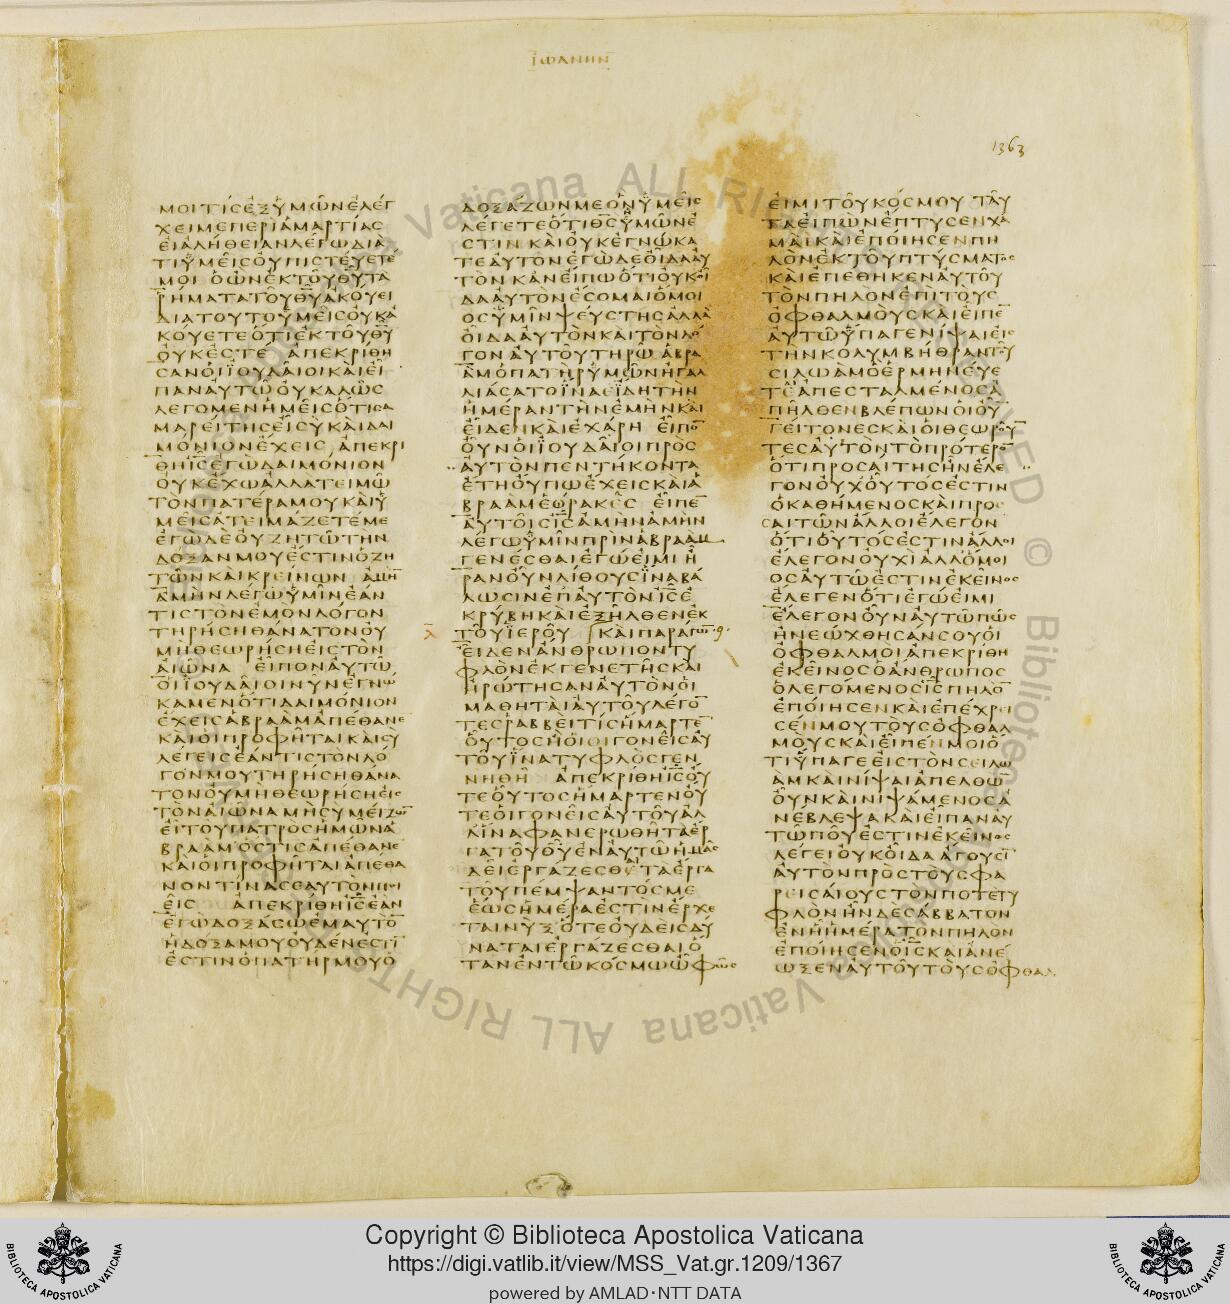 ΙΩΑΝΗΝ
1363
ΜΟΙΤΙΣΕΞΥΜΩΝΕΛΕΓ
ΧΕΙΜΕΠΕΡΙΑΜΑΡΤΙΑΣ
ΕΙΑΛΗΘΕΙΑΝΛΕΓΩΔΙΑ
ΤΙΥΜΕΙΣΟΥΠΙΣΤΕΥΕΤΕ
ΜΟΙ ΟΩΝΕΚΤΟΥΘΥΤΑ
ΡΗΜΑΤΑΤΟΥΘΥΑΚΟΥΕΙ
ΔΙΑΤΟΥΤΟΥΜΕΙΣΟΥΚΑ
ΚΟΥΕΤΕΟΤΙΕΚΤΟΥΘΥ
ΟΥΚΕΣΤΕ ΑΠΕΚΡΙΘΗ
ΣΑΝΟΙΙΟΥΔΑΙΟΙΚΑΙΕΙ
ΠΑΝΑΥΤΩΟΥΚΑΛΩΣ
ΛΕΓΟΜΕΝΗΜΕΙΣΟΤΙΣΑ
ΜΑΡΕΙΤΗΣΕΙΣΥΚΑΙΔΑΙ
ΜΟΝΙΟΝΕΧΕΙΣ ΑΠΕΚΡΙ
ΘΗΙΣΕΓΩΔΑΙΜΟΝΙΟΝ
ΟΥΚΕΧΩΑΛΛΑΤΕΙΜΩ
ΤΟΝΠΑΤΕΡΑΜΟΥΚΑΙΥ
ΜΕΙΣΑΤΕΙΜΑΖΕΤΕΜΕ
ΕΓΩΔΕΟΥΖΗΤΩΤΗΝ
ΔΟΞΑΝΜΟΥΕΣΤΙΝΟΖΗ
ΤΩΝΚΑΙΚΡΕΙΝΩΝ ΑΜΗ
ΑΜΗΝΛΕΓΩΥΜΙΝΕΑΝ
ΤΙΣΤΟΝΕΜΟΝΛΟΓΟΝ
ΤΗΡΗΣΗΘΑΝΑΤΟΝΟΥ
ΜΗΘΕΩΡΗΣΗΕΙΣΤΟΝ
ΑΙΩΝΑ ΕΙΠΟΝΑΥΤΩ
ΟΙΙΟΥΔΑΙΟΙΝΥΝΕΓΝΩ
ΚΑΜΕΝΟΤΙΔΑΙΜΟΝΙΟΝ
ΕΧΕΙΣΑΒΡΑΑΜΑΠΕΘΑΝΕ
ΚΑΙΟΙΠΡΟΦΗΤΑΙΚΑΙΣΥ
ΛΕΓΕΙΣΕΑΝΤΙΣΤΟΝΛΟ
ΓΟΝΜΟΥΤΗΡΗΣΗΘΑΝΑ
ΤΟΝΟΥΜΗΘΕΩΡΗΣΗΕΙΣ
ΤΟΝΑΙΩΝΑΜΗΣΥΜΕΙΖΩ
ΕΙΤΟΥΠΑΤΡΟΣΗΜΩΝΑ
ΒΡΑΑΜΟΣΤΙΣΑΠΕΘΑΝΕ
ΚΑΙΟΙΠΡΟΦΗΤΑΙΑΠΕΘΑ
ΝΟΝΤΙΝΑΣΕΑΥΤΟΝΠΟΙ
ΕΙΣ ΑΠΕΚΡΙΘΗΙΣΕΑΝ
ΕΓΩΔΟΞΑΣΩΕΜΑΥΤΟ
ΗΔΟΞΑΜΟΥΟΥΔΕΝΕΣΤΙ
ΕΣΤΙΝΟΠΑΤΗΡΜΟΥΟ
ΔΟΞΑΖΩΝΜΕΟΝΥΜΕΙΣ
ΛΕΓΕΤΕΟΤΙΘΣΥΜΩΝΕ
ΣΤΙΝ ΚΑΙΟΥΚΕΓΝΩΚΑ
ΤΕΑΥΤΟΝΕΓΩΔΕΟΙΔΑΑΥ
ΤΟΝ ΚΑΝΕΙΠΩΟΤΙΟΥΚΟΙ
ΔΑΑΥΤΟΝΕΣΟΜΑΙΟΜΟΙ
ΟΣΥΜΙΝΨΕΥΣΤΗΣΑΛΛΑ
ΟΙΔΑΑΥΤΟΝΚΑΙΤΟΝΛΟ
ΓΟΝΑΥΤΟΥΤΗΡΩ ΑΒΡΑ
ΑΜΟΠΑΤΗΡΥΜΩΝΗΓΑΛ
ΛΙΑΣΑΤΟΙΝΑΕΙΔΗΤΗΝ
ΗΜΕΡΑΝΤΗΝΕΜΗΝΚΑΙ
ΕΙΔΕΝΚΑΙΕΧΑΡΗ ΕΙΠΟ
ΟΥΝΟΙΙΟΥΔΑΙΟΙΠΡΟΣ
ΑΥΤΟΝΠΕΝΤΗΚΟΝΤΑ
ΕΤΗΟΥΠΩΕΧΕΙΣΚΑΙΑ
ΒΡΑΑΜΕΩΡΑΚΕΣ ΕΙΠΕ
ΑΥΤΟΙΣΙΣΑΜΗΝΑΜΗΝ
ΛΕΓΩΥΜΙΝΠΡΙΝΑΒΡΑΑΜ
ΓΕΝΕΣΘΑΙΕΓΩΕΙΜΙ Η
ΡΑΝΟΥΝΛΙΘΟΥΣΙΝΑΒΑ
ΛΩΣΙΝΕΠΑΥΤΟΝΙΣΕ
ΚΡΥΒΗΚΑΙΕΞΗΛΘΕΝΕΚ
ΤΟΥΙΕΡΟΥ ΚΑΙΠΑΡΑΓΩ
ΕΙΔΕΝΑΝΘΡΩΠΟΝΤΥ
ΦΛΟΝΕΚΓΕΝΕΤΗΣΚΑΙ
ΗΡΩΤΗΣΑΝΑΥΤΟΝΟΙ
ΜΑΘΗΤΑΙΑΥΤΟΥΛΕΓΟ
ΤΕΣΡΑΒΒΕΙΤΙΣΗΜΑΡΤΕ
ΟΥΤΟΣΗΟΙΓΟΝΕΙΣΑΥ
ΤΟΥΙΝΑΤΥΦΛΟΣΓΕΝ
ΝΗΘΗ ΑΠΕΚΡΙΘΗΙΣΟΥ
ΤΕΟΥΤΟΣΗΜΑΡΤΕΝΟΥ
ΤΕΟΙΓΟΝΕΙΣΑΥΤΟΥΑΛ
ΛΙΝΑΦΑΝΕΡΩΘΗΤΑΕΡ
ΓΑΤΟΥΘΥΕΝΑΥΤΩΗΜΑΣ
ΔΕΙΕΡΓΑΖΕΣΘΕΤΑΕΡΓΑ
ΤΟΥΠΕΜΨΑΝΤΟΣΜΕ
ΕΩΣΗΜΕΡΑΕΣΤΙΝΕΡΧΕ
ΤΑΙΝΥΞΟΤΕΟΥΔΕΙΣΔΥ
ΝΑΤΑΙΕΡΓΑΖΕΣΘΑΙΟ
ΤΑΝΕΝΤΩΚΟΣΜΩΩΦΩΣ
ΕΙΜΙΤΟΥΚΟΣΜΟΥ ΤΑΥ
ΤΑΕΙΠΩΝΕΠΤΥΣΕΝΧΑ
ΜΑΙΚΑΙΕΠΟΙΗΣΕΝΠΗ
ΛΟΝΕΚΤΟΥΠΤΥΣΜΑΤΟΣ
ΚΑΙΕΠΕΘΗΚΕΝΑΥΤΟΥ
ΤΟΝΠΗΛΟΝΕΠΙΤΟΥΣ
ΟΦΘΑΛΜΟΥΣΚΑΙΕΙΠΕ
ΑΥΤΩΥΠΑΓΕΝΙΨΑΙΕΙΣ
ΤΗΝΚΟΛΥΜΒΗΘΡΑΝΤΟΥ
ΣΙΛΩΑΜΟΕΡΜΗΝΕΥΕ
ΤΕΑΠΕΣΤΑΛΜΕΝΟΣΑ
ΠΗΛΘΕΝΒΛΕΠΩΝΟΙΟΥ
ΓΕΙΤΟΝΕΣΚΑΙΟΙΘΕΩΡΟΥ
ΤΕΣΑΥΤΟΝΤΟΠΡΟΤΕΡΟ
ΟΤΙΠΡΟΣΑΙΤΗΣΗΝΕΛΕ
ΓΟΝΟΥΧΟΥΤΟΣΕΣΤΙΝ
ΟΚΑΘΗΜΕΝΟΣΚΑΙΠΡΟΣ
ΑΙΤΩΝΑΛΛΟΙΕΛΕΓΟΝ
ΟΤΙΟΥΤΟΣΕΣΤΙΝΑΛΛΟΙ
ΕΛΕΓΟΝΟΥΧΙΑΛΛΟΜΟΙ
ΟΣΑΥΤΩΕΣΤΙΝΕΚΕΙΝΟΣ
ΕΛΕΓΕΝΟΤΙΕΓΩΕΙΜΙ
ΕΛΕΓΟΝΟΥΝΑΥΤΩΠΩΣ
ΗΝΕΩΧΘΗΣΑΝΣΟΥΟΙ
ΟΦΘΑΛΜΟΙΑΠΕΚΡΙΘΗ
ΕΚΕΙΝΟΣΟΑΝΘΡΩΠΟΣ
ΟΛΕΓΟΜΕΝΟΣΙΣΠΗΛΟ
ΕΠΟΙΗΣΕΝΚΑΙΕΠΕΧΡΕΙ
ΣΕΝΜΟΥΤΟΥΣΟΦΘΑΛ
ΜΟΥΣΚΑΙΕΙΠΕΝΜΟΙΟ
ΤΙΥΠΑΓΕΕΙΣΤΟΝΣΕΙΛΩ
ΑΜΚΑΙΝΙΨΑΙΑΠΕΛΘΩ
ΟΥΝΚΑΙΝΙΨΑΜΕΝΟΣΑ
ΝΕΒΛΕΨΑΚΑΙΕΙΠΑΝΑΥ
ΤΩΠΟΥΕΣΤΙΝΕΚΕΙΝΟΣ
ΛΕΓΕΙΟΥΚΟΙΔΑΑΓΟΥΣΙ
ΑΥΤΟΝΠΡΟΣΤΟΥΣΦΑ
ΡΕΙΣΑΙΟΥΣΤΟΝΠΟΤΕΤΥ
ΦΛΟΝΗΝΔΕΣΑΒΒΑΤΟΝ
ΕΝΗΗΜΕΡΑΤΟΝΠΗΛΟΝ
ΕΠΟΙΗΣΕΝΟΙΣΚΑΙΑΝΕ
ΩΞΕΝΑΥΤΟΥΤΟΥΣΟΦΘΑΛ
Copyright © Biblioteca Apostolica Vaticana
https://digi.vatlib.it/view/MSS_Vat.gr.1209/1367
powered by AMLAD·NTT DATA